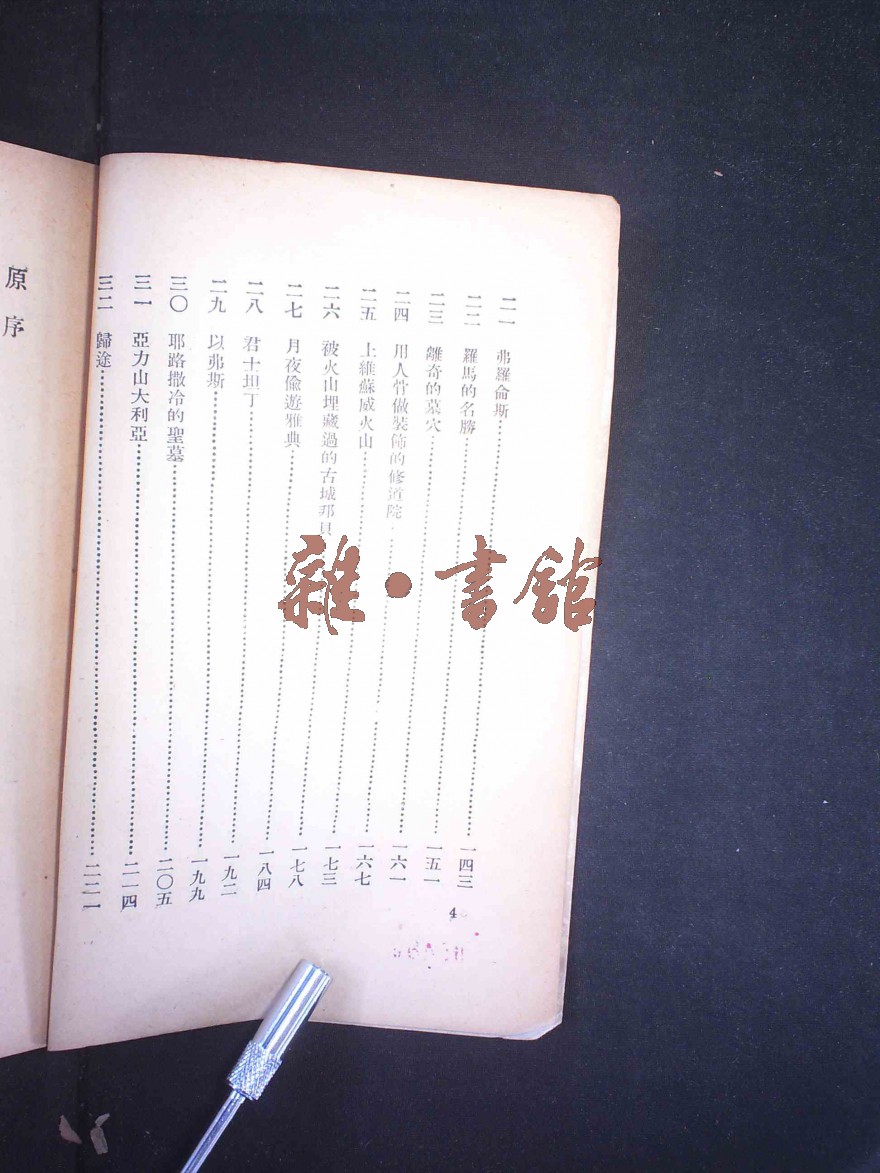 二一 弗羅侖斯……一四三
二二 羅馬的名勝……一五一
二三 離奇的墓穴……一六一
二四 用人骨做裝飾的修道院……一六七
二五 上維蘇威火山……一七三
二六 被火山埋藏過的古城邦貝……一七八
二七 月夜偸遊雅典……一八四
二八 君士坦丁……一九二
二九 以弗斯……一九九
三〇 耶路撒冷的聖墓……二〇五
三一 亞力山大利亞……二一四
三二 歸途……二二一
4
原序
雜·書館